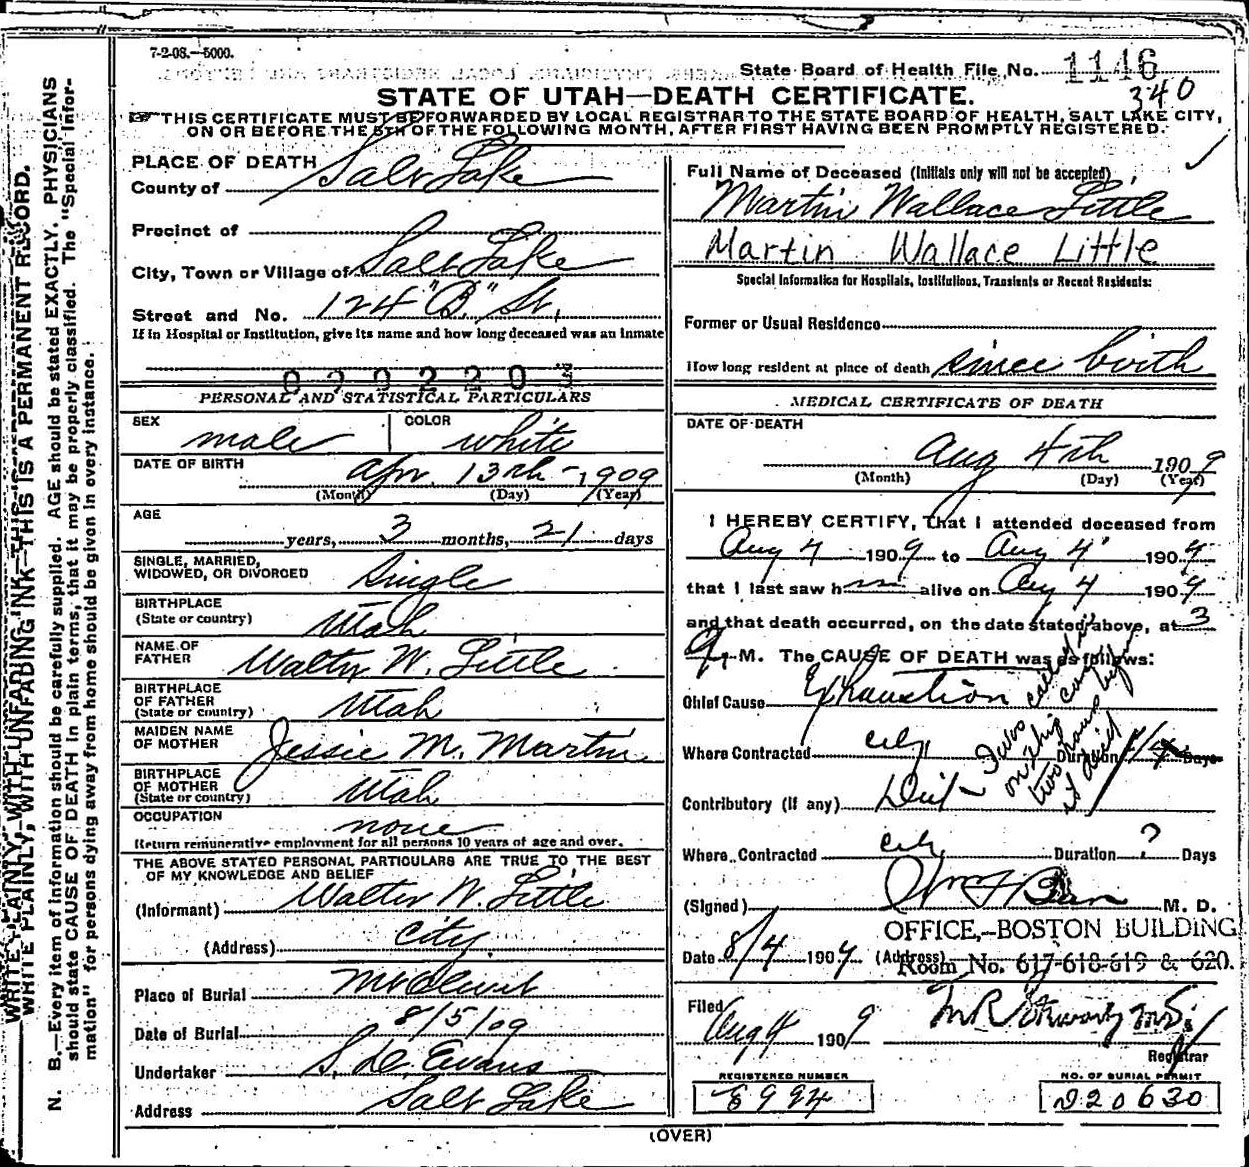 7-2-08.—5000.
State Board of Health File No. 1146
340
STATE OF UTAH—DEATH CERTIFICATE.
THIS CERTIFICATE MUST BE FORWARDED BY LOCAL REGISTRAR TO THE STATE BOARD OF HEALTH, SALT LAKE CITY,
ON OR BEFORE THE 5TH OF THE FOLLOWING MONTH, AFTER FIRST HAVING BEEN PROMPTLY REGISTERED.
WRITE PLAINLY, WITH UNFADING INK—THIS IS A PERMANENT RECORD.
N. B.—Every item of information should be carefully supplied. AGE should be stated EXACTLY. PHYSICIANS
should state CAUSE OF DEATH in plain terms, that it may be properly classified. The "Special Infor-
mation" for persons dying away from home should be given in every instance.
PLACE OF DEATH
County of Salt Lake
Precinct of
City, Town or Village of Salt Lake
Street and No. 124 "B" St.
If in Hospital or Institution, give its name and how long deceased was an inmate
PERSONAL AND STATISTICAL PARTICULARS
SEX male COLOR white
DATE OF BIRTH Apr. 13th - 1909
(Month) (Day) (Year)
AGE
years, 3 months, 21 days
SINGLE, MARRIED,
WIDOWED, OR DIVORCED Single
BIRTHPLACE
(State or country) Utah
NAME OF
FATHER Walter W. Little
BIRTHPLACE
OF FATHER
(State or country) Utah
MAIDEN NAME
OF MOTHER Jessie M. Martin
BIRTHPLACE
OF MOTHER
(State or country) Utah
OCCUPATION none
Return remunerative employment for all persons 10 years of age and over.
THE ABOVE STATED PERSONAL PARTICULARS ARE TRUE TO THE BEST
OF MY KNOWLEDGE AND BELIEF
(Informant) Walter W. Little
(Address) City
Place of Burial Mt Olivet
Date of Burial 8/5/09
Undertaker S. D. Evans
Address Salt Lake
Full Name of Deceased (Initials only will not be accepted)
Martin Wallace Little
Martin Wallace Little
Special Information for Hospitals, Institutions, Transients or Recent Residents:
Former or Usual Residence
How long resident at place of death since birth
MEDICAL CERTIFICATE OF DEATH
DATE OF DEATH
Aug 4th 1909
(Month) (Day) (Year)
I HEREBY CERTIFY, that I attended deceased from
Aug 4 1909 to Aug 4 190
that I last saw h alive on Aug 4 190
and that death occurred, on the date stated above, at 3
M. The CAUSE OF DEATH was as follows:
Chief Cause Exhaustion
Where Contracted city Duration Days
Contributory (If any) Diet - I was called in
on this case
two hours before
it died
Where Contracted city Duration ? Days
(Signed) M. D.
OFFICE,-BOSTON BUILDING
Date 8/4 190 (Address) Room No. 617-618-619 & 620.
Filed Aug 4 1909
Registrar
REGISTERED NUMBER
E 994
NO. OF BURIAL PERMIT
D20630
(OVER)